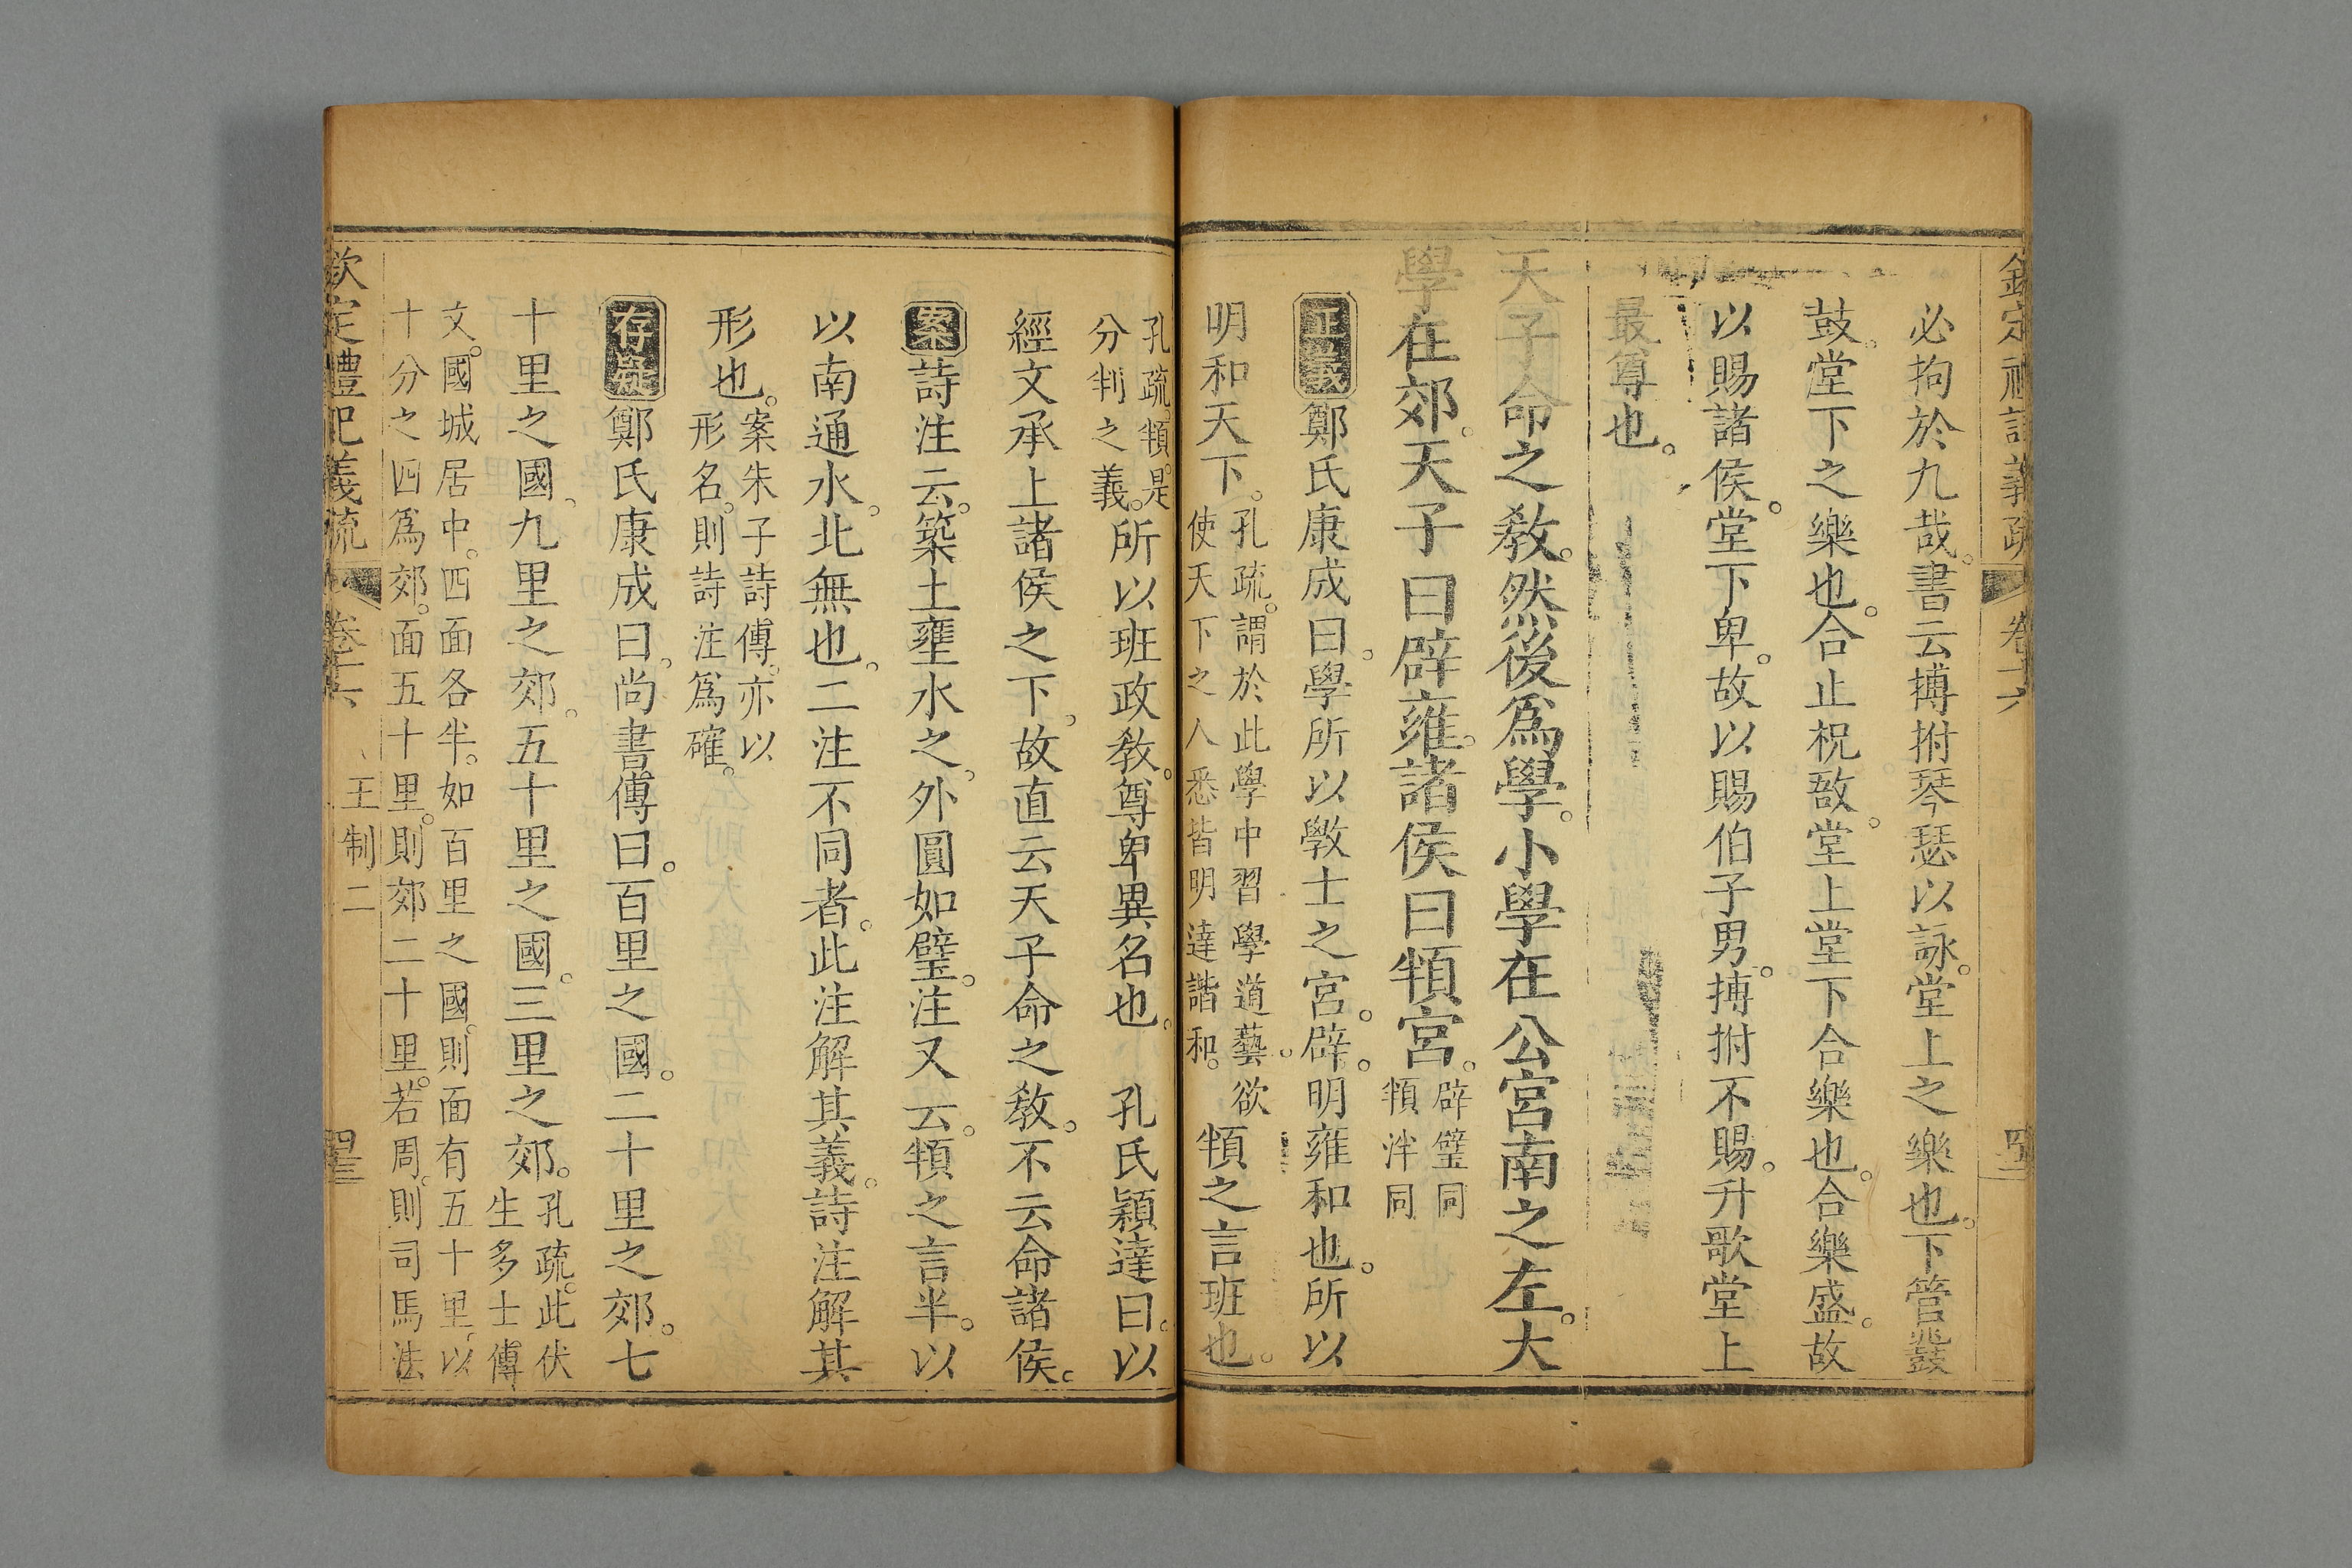 欽定禮記義疏 卷十六
必拘於九哉。書云搏拊琴瑟以詠。堂上之樂也。下管鼗
鼓。堂下之樂也。合止柷敔。堂上堂下合樂也。合樂盛。故
以賜諸侯。堂下卑。故以賜伯子男。搏拊不賜。升歌堂上
最尊也。
天子命之敎。然後爲學。小學在公宮南之左。大
學在郊。天子曰辟雍。諸侯曰頖宮。辟璧同
頖泮同
正義鄭氏康成曰。學所以斆士之宮。辟。明雍和也。所以
明和天下。孔疏。謂於此學中習學道藝。欲
使天下之人悉皆明達諧和。頖之言班也。
孔疏。頖。是
分判之義。所以班政敎。尊卑異名也。 孔氏穎達曰。以
經文承上諸侯之下。故直云天子命之敎。不云命諸侯。
案詩注云。築土壅水之。外圓如璧。注又云。頖之言半。以
以南通水。北無也。二注不同者。此注解其義。詩注解其
形也。案朱子詩傳。亦以
形名。則詩注爲確。
存疑鄭氏康成曰。尚書傳曰。百里之國。二十里之郊。七
十里之國。九里之郊。五十里之國。三里之郊。孔疏。此伏
生多士傳
文。國城居中。四面各半。如百里之國。則面有五十里。以
十分之四爲郊。面五十里。則郊二十里。若周。則司馬法
欽定禮記義疏 卷十六 王制二